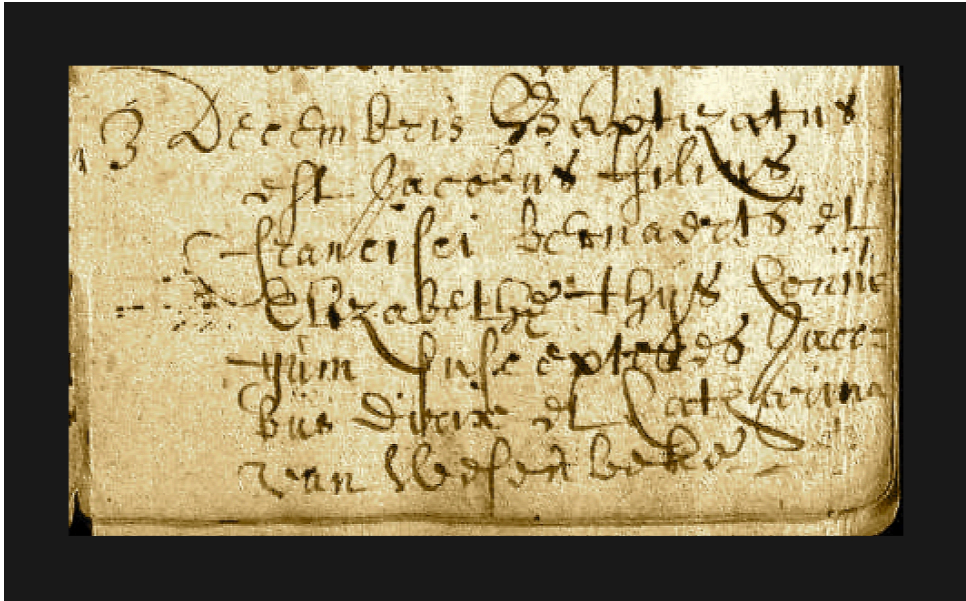 3 Decembris Baptizatus
est Jacobus filius
francisci bernaerts et
Elizabethę thys Coniu
gum susceptores Jaco=
bus et Catharina
van Wesenbeke